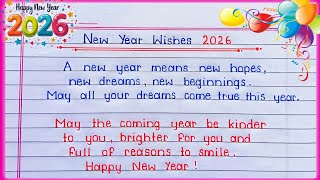 Happy New Year
2026
New Year Wishes 2026
A new year means new hopes,
new dreams, new beginnings.
May all your dreams come true this year.
May the coming year be kinder
to you, brighter for you and
full of reasons to smile.
Happy New Year!